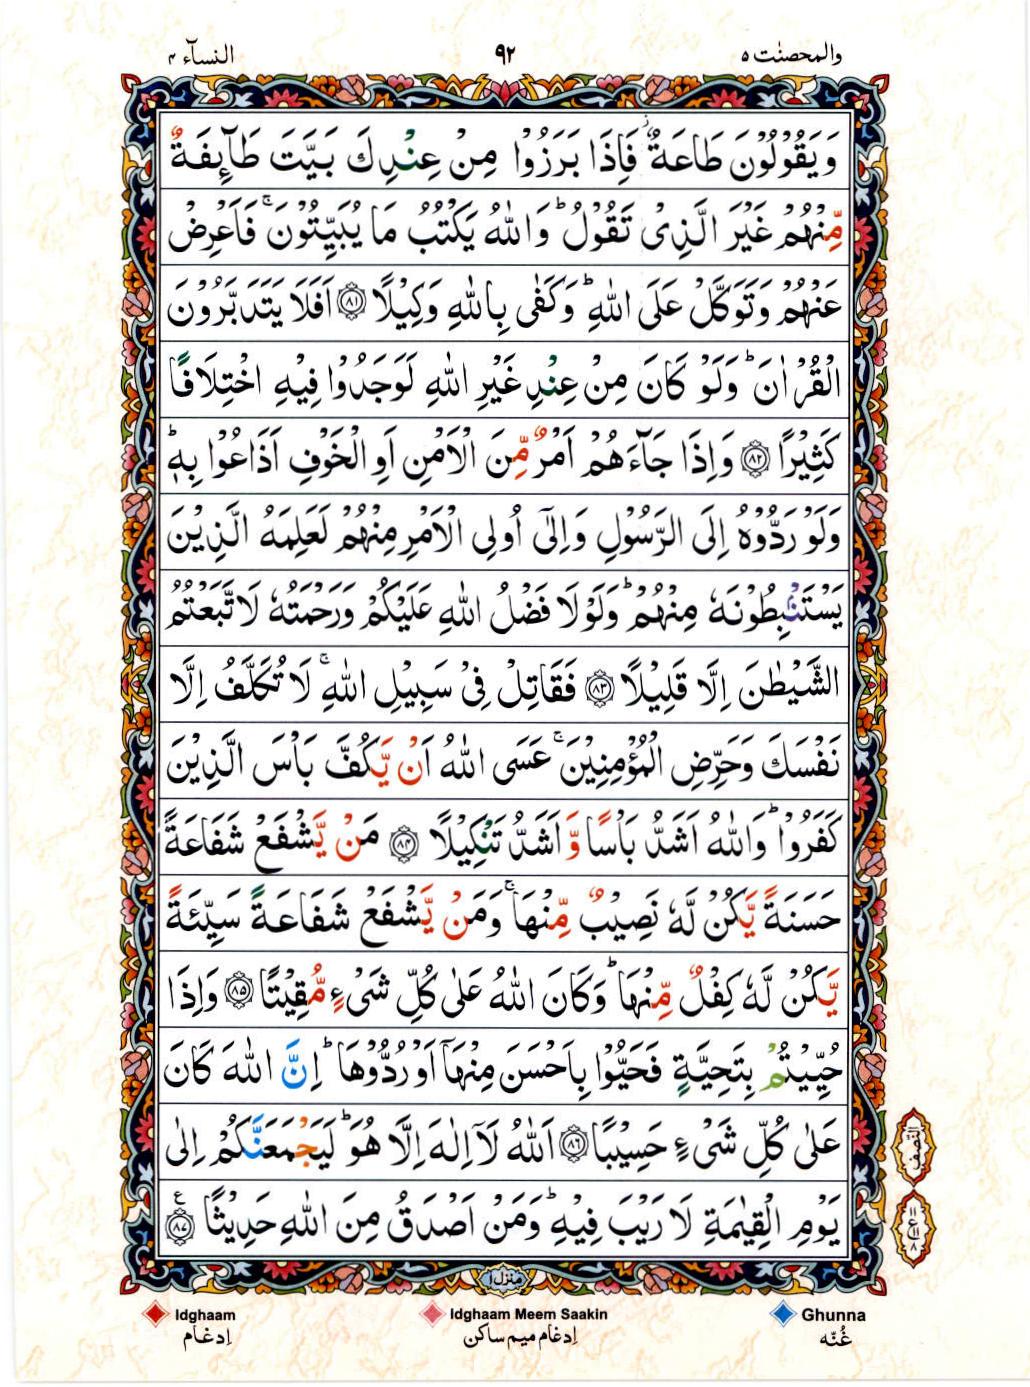 والمحصنٰت ۵ ۹۲ النسآء ۴
وَيَقُوْلُوْنَ طَاعَةٌ ز فَاِذَا بَرَزُوْا مِنْ عِنْدِكَ بَيَّتَ طَآئِفَةٌ
مِّنْهُمْ غَيْرَ الَّذِىْ تَقُوْلُ ؕ وَاللّٰهُ يَكْتُبُ مَا يُبَيِّتُوْنَ ۚ فَاَعْرِضْ
عَنْهُمْ وَتَوَكَّلْ عَلَى اللّٰهِ ؕ وَكَفٰى بِاللّٰهِ وَكِيْلًا ﴿۸۱﴾ اَفَلَا يَتَدَبَّرُوْنَ
الْقُرْاٰنَ ؕ وَلَوْ كَانَ مِنْ عِنْدِ غَيْرِ اللّٰهِ لَوَجَدُوْا فِيْهِ اخْتِلَافًا
كَثِيْرًا ﴿۸۲﴾ وَاِذَا جَآءَهُمْ اَمْرٌ مِّنَ الْاَمْنِ اَوِ الْخَوْفِ اَذَاعُوْا بِهٖ ؕ
وَلَوْ رَدُّوْهُ اِلَى الرَّسُوْلِ وَاِلٰٓى اُولِى الْاَمْرِ مِنْهُمْ لَعَلِمَهُ الَّذِيْنَ
يَسْتَنْۢبِطُوْنَهٗ مِنْهُمْ ؕ وَلَوْ لَا فَضْلُ اللّٰهِ عَلَيْكُمْ وَرَحْمَتُهٗ لَاتَّبَعْتُمُ
الشَّيْطٰنَ اِلَّا قَلِيْلًا ﴿۸۳﴾ فَقَاتِلْ فِىْ سَبِيْلِ اللّٰهِ ۚ لَا تُكَلَّفُ اِلَّا
نَفْسَكَ وَحَرِّضِ الْمُؤْمِنِيْنَ ۚ عَسَى اللّٰهُ اَنْ يَّكُفَّ بَاْسَ الَّذِيْنَ
كَفَرُوْا ؕ وَاللّٰهُ اَشَدُّ بَاْسًا وَّاَشَدُّ تَنْكِيْلًا ﴿۸۴﴾ مَنْ يَّشْفَعْ شَفَاعَةً
حَسَنَةً يَّكُنْ لَّهٗ نَصِيْبٌ مِّنْهَا ۚ وَمَنْ يَّشْفَعْ شَفَاعَةً سَيِّئَةً
يَّكُنْ لَّهٗ كِفْلٌ مِّنْهَا ؕ وَكَانَ اللّٰهُ عَلٰى كُلِّ شَىْءٍ مُّقِيْتًا ﴿۸۵﴾ وَاِذَا
حُيِّيْتُمْ بِتَحِيَّةٍ فَحَيُّوْا بِاَحْسَنَ مِنْهَآ اَوْ رُدُّوْهَا ؕ اِنَّ اللّٰهَ كَانَ
عَلٰى كُلِّ شَىْءٍ حَسِيْبًا ﴿۸۶﴾ اَللّٰهُ لَآ اِلٰهَ اِلَّا هُوَ ؕ لَيَجْمَعَنَّكُمْ اِلٰى
النّصف
يَوْمِ الْقِيٰمَةِ لَا رَيْبَ فِيْهِ ؕ وَمَنْ اَصْدَقُ مِنَ اللّٰهِ حَدِيْثًا ﴿۸۷﴾ ع
۱۱ ع ۱۱ ۸
منزل ۱
Idghaam Idghaam Meem Saakin Ghunna
اِدغام اِدغام میم ساکن غُنّہ